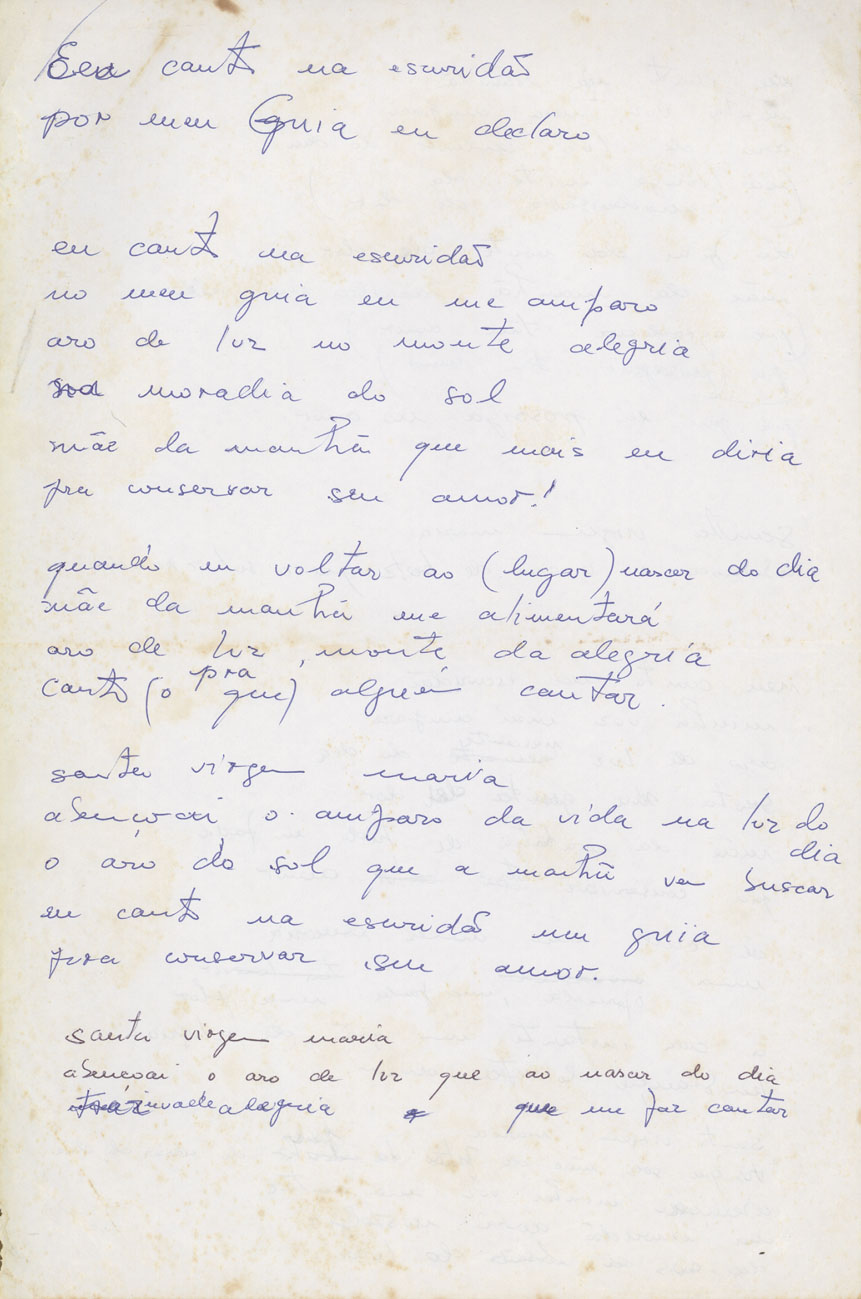 Eu canto na escuridão
por meu Guia eu declaro
eu canto na escuridão
no meu guia eu me amparo
aro de luz no monte alegria
moradia do sol
mãe da manhã que mais eu diria
pra conservar seu amor!
quando eu voltar ao (lugar) nascer do dia
mãe da manhã me alimentará
aro de luz, monte da alegria
pra
canto (o que) alguém cantar.
santa virgem maria
abençoai o amparo da vida na luz do
dia
o aro do sol que a manhã vem buscar
eu canto na escuridão um guia
pra conservar seu amor.
santa virgem maria
abençoai o aro de luz que ao nascer do dia
invade alegria que me faz cantar